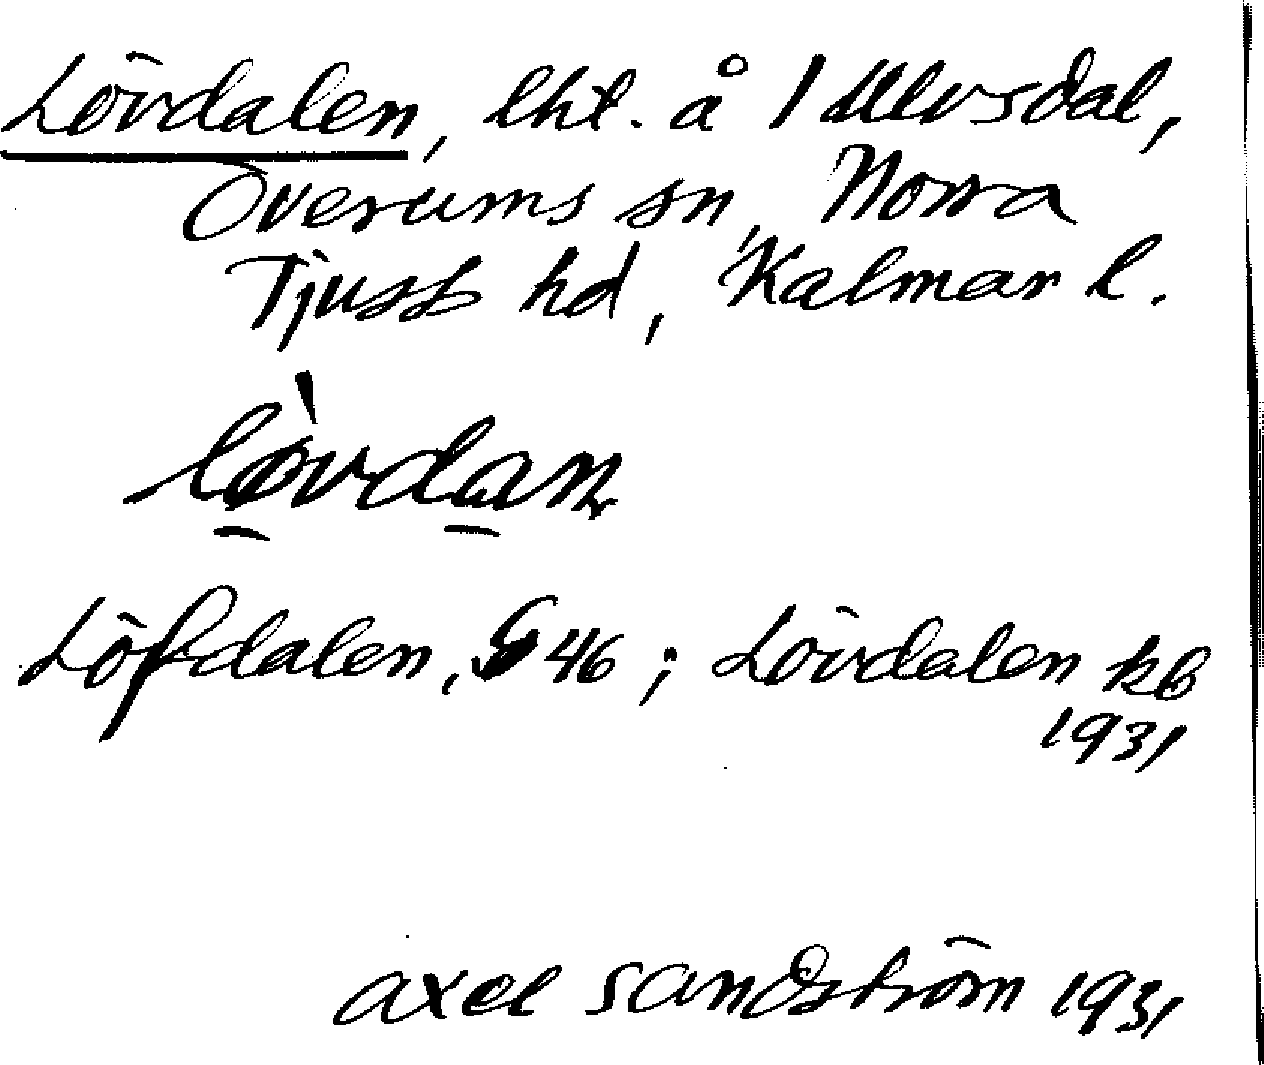 Lövdalen, lht. å 1 Ulvsdal,
Överums sn, Norra
Tjust hd, Kalmar l.
lø̀vdan
Löfdalen, G 46 ; Lövdalen kb
1931
Axel Sandström 1931